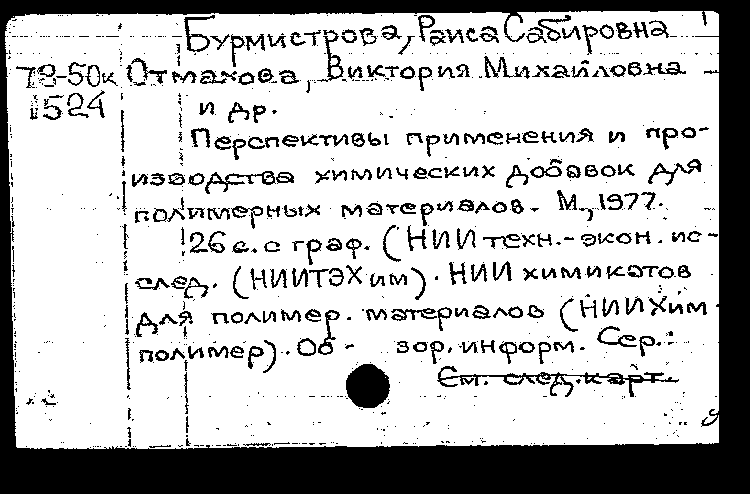 Бурмистрова, Раиса Сабировна
78-50к Отмахова, Виктория Михайловна
1524 и др.
Перспективы применения и про-
изводства химических добавок для
полимерных материалов. М., 1977.
26 с. с граф. (НИИ техн.-экон. ис-
след. (НИИТЭХим). НИИ химикатов
для полимер. материалов (НИИХим-
полимер). Об- зор. информ. Сер.:
См. след. карт.